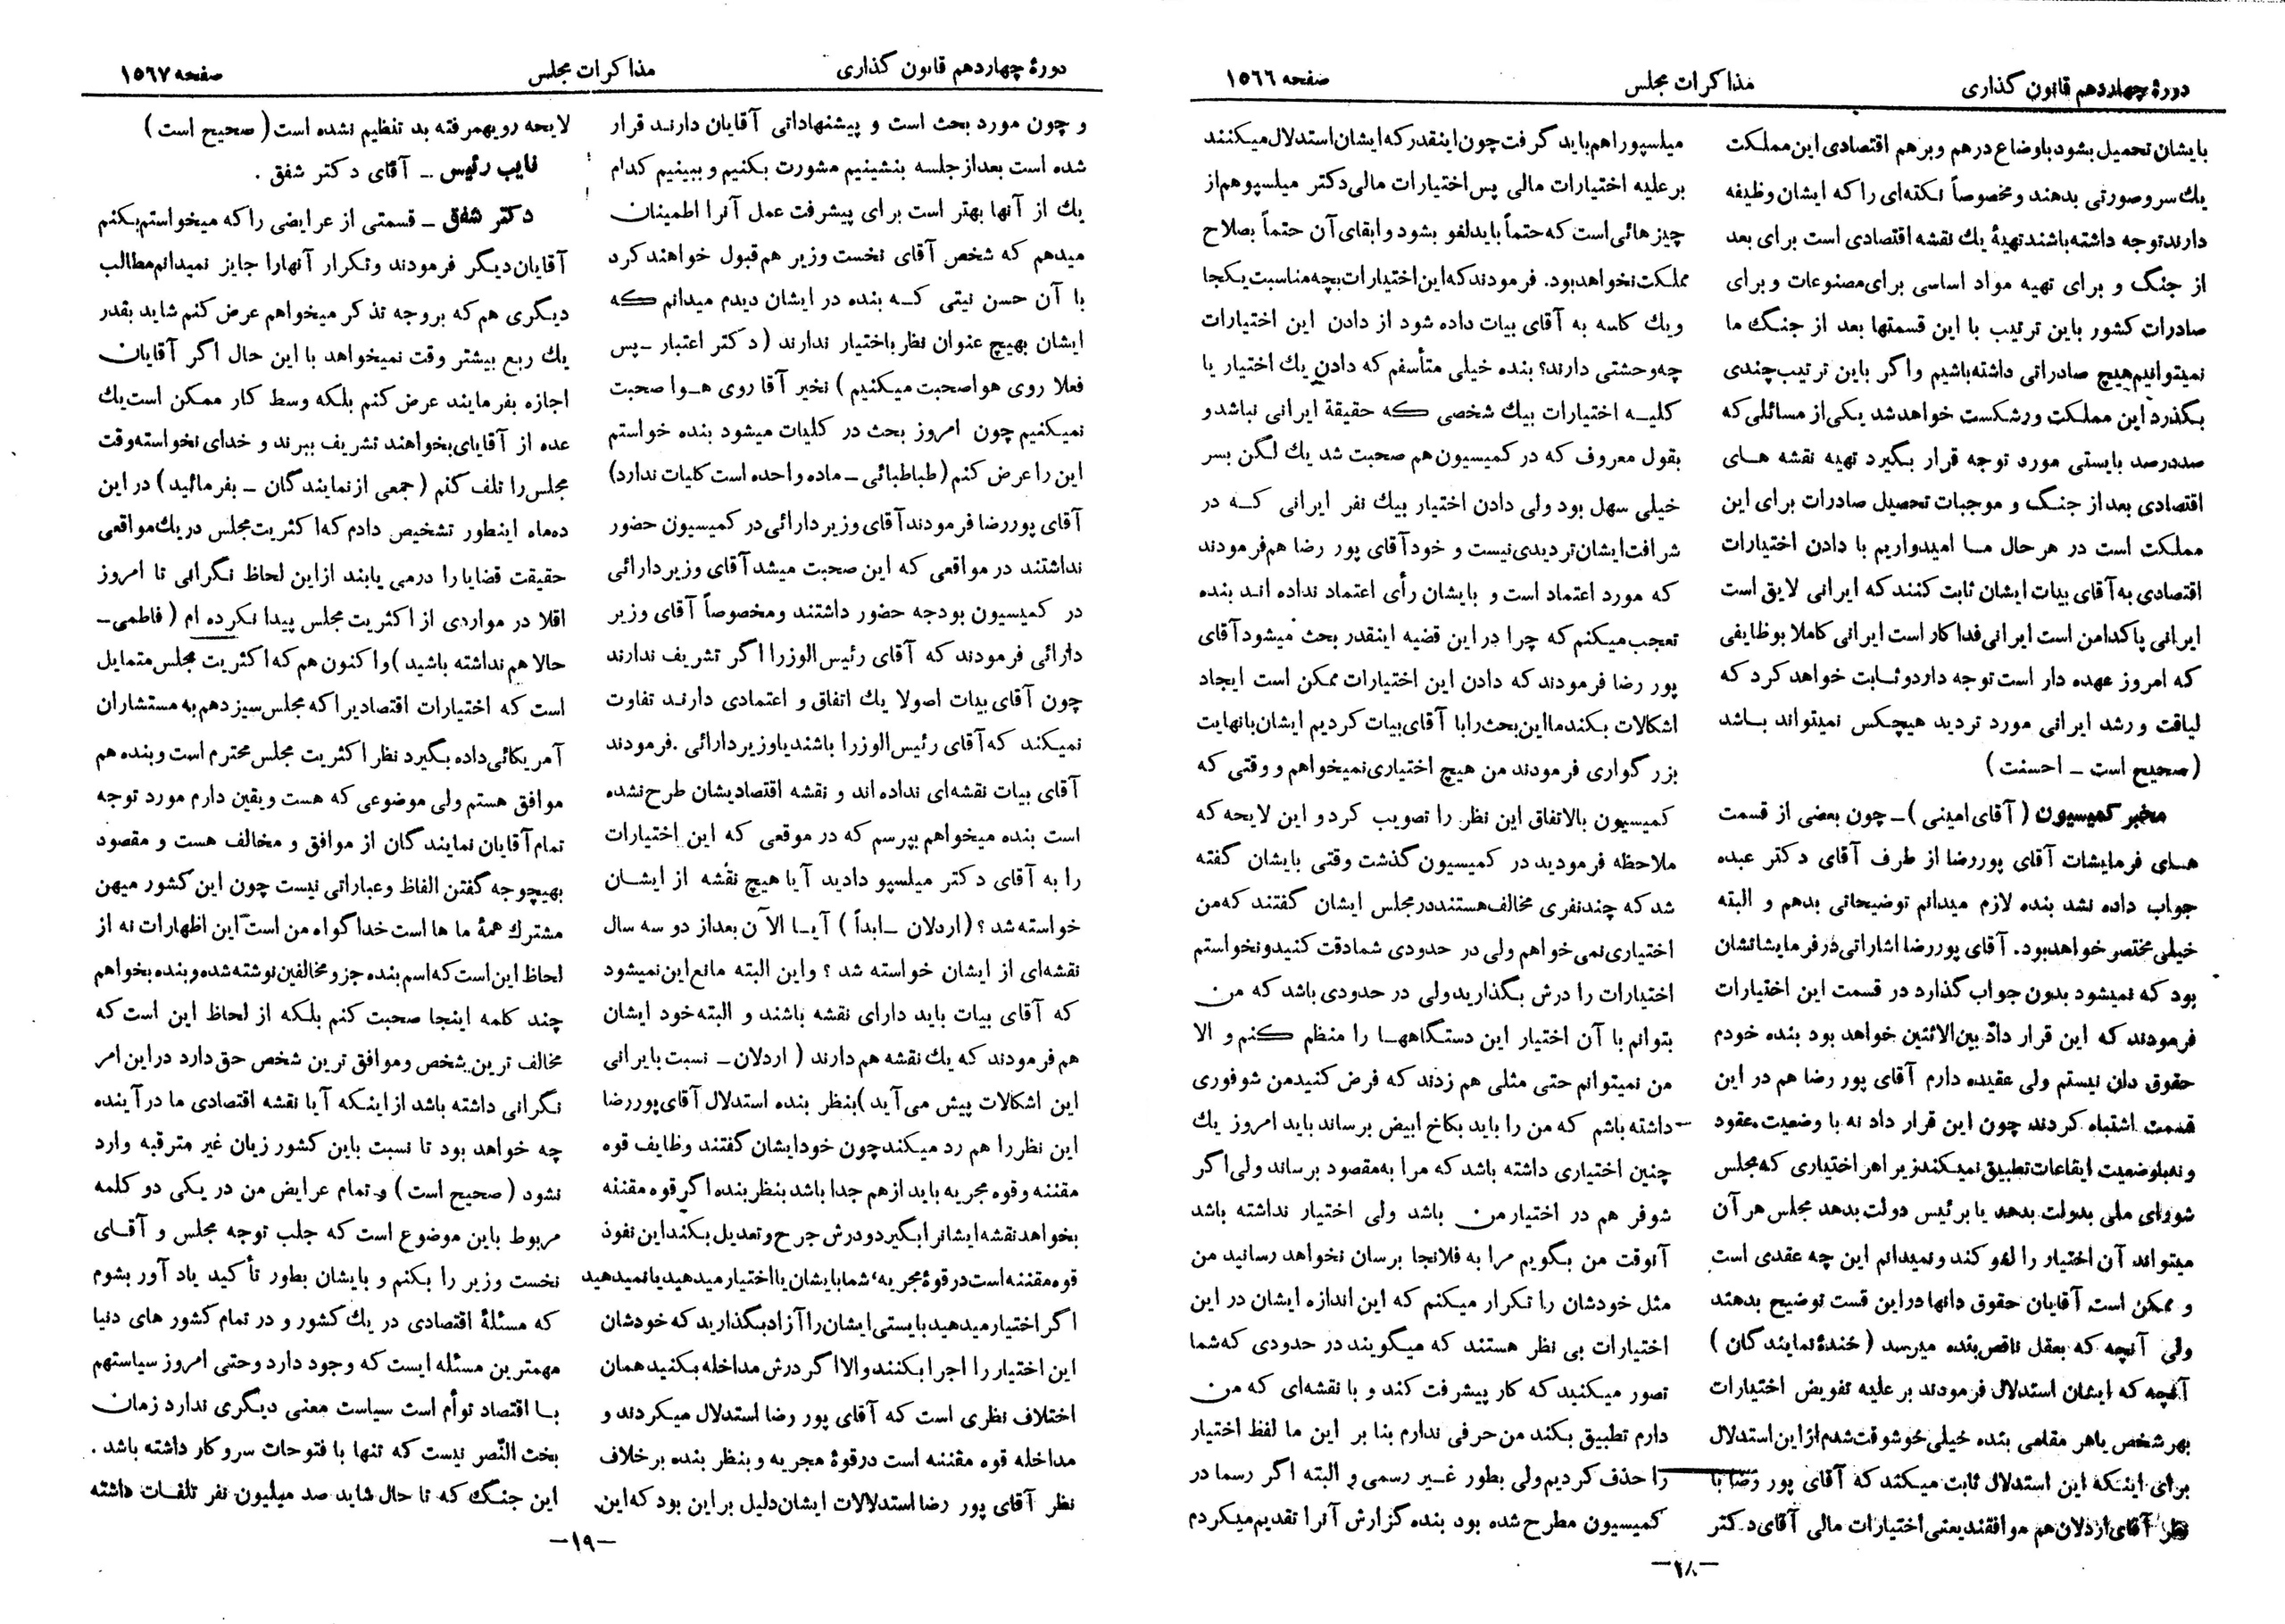 دورهٔ چهاردهم قانون گذاری
مذاکرات مجلس
صفحه ۱۵۶۶
بایشان تحمیل بشود باوضاع درهم و برهم اقتصادی این مملکت
یك سر و صورتی بدهند و مخصوصاً نکته‌ای را که ایشان وظیفه
دارند توجه داشته باشند تهیهٔ یك نقشه اقتصادی است برای بعد
از جنگ و برای تهیه مواد اساسی برای مصنوعات و برای
صادرات کشور باین ترتیب با این قسمتها بعد از جنگ ما
نمیتوانیم هیچ صادراتی داشته باشیم و اگر باین ترتیب چندی
بگذرد این مملکت ورشکست خواهد شد یکی از مسائلی که
صددرصد بایستی مورد توجه قرار بگیرد تهیه نقشه هـای
اقتصادی بعد از جنگ و موجبات تحصیل صادرات برای این
مملکت است در هر حال مـا امیدواریم با دادن اختیارات
اقتصادی به آقای بیات ایشان ثابت کنند که ایرانی لایق است
ایرانی پاکدامن است ایرانی فداکار است ایرانی کاملا بوظایفی
که امروز عهده دار است توجه دارد و ثـابت خواهد کرد که
لیاقت و رشد ایرانی مورد تردید هیچکس نمیتواند بـاشد
(صحیح است ـ احسنت)
مخبر کمیسیون (آقای امینی) ـ چون بعضی از قسمت
هـای فرمایشات آقای پوررضا از طرف آقای دکتر عبده
جواب داده نشد بنده لازم میدانم توضیحاتی بدهم و البته
خیلی مختصر خواهد بود. آقای پوررضا اشاراتی در فرمایشاتشان
بود که نمیشود بدون جواب گذارد در قسمت این اختیارات
فرمودند که این قرار داد بین‌الاثنین خواهد بود بنده خودم
حقوق دان نیستم ولی عقیده دارم آقای پور رضا هم در این
قسمت اشتباه کردند چون این قرار داد نه با وضعیت عقود
و نه باوضعیت ایقاعات تطبیق نمیکند زیرا هر اختیاری که مجلس
شورای ملی بدولت بدهد یا برئیس دولت بدهد مجلس هر آن
میتواند آن اختیار را لغو کند و نمیدانم این چه عقدی است
و ممکن است آقایان حقوق دانها در این قست توضیح بدهند
ولی آنچه که بعقل ناقص بنده میرسد (خندهٔ نمایندگان)
آنچه که ایشان استدلال فرمودند بر علیه تفویض اختیارات
بهر شخص یا هر مقامی بنده خیلی خوشوقت شدم از این استدلال
برای اینکه این استدلال ثابت میکند که آقای پور رضا با
نظر آقای اردلان هم موافقند یعنی اختیارات مالی آقای دکتر
میلسپو را هم باید گرفت چون اینقدر که ایشان استدلال میکنند
بر علیه اختیارات مالی پس اختیارات مالی دکتر میلسپو هم از
چیز هائی است که حتماً باید لغو بشود و ابقای آن حتماً بصلاح
مملکت نخواهد بود. فرمودند که این اختیارات بچه مناسبت یکجا
و یك کاسه به آقای بیات داده شود از دادن این اختیارات
چه وحشتی دارند؟ بنده خیلی متأسفم که دادن یك اختیار یا
کلیـه اختیارات بیك شخصی که حقیقة ایرانی نباشد و
بقول معروف که در کمیسیون هم صحبت شد یك لگن بسر
خیلی سهل بود ولی دادن اختیار بیك نفر ایرانی کـه در
شرافت ایشان تردیدی نیست و خود آقای پور رضا هم فرمودند
که مورد اعتماد است و بایشان رأی اعتماد نداده انـد بنده
تعجب میکنم که چرا در این قضیه اینقدر بحث میشود آقای
پور رضا فرمودند که دادن این اختیارات ممکن است ایجاد
اشکالات بکند ما این بحث را با آقای بیات کردیم ایشان با نهایت
بزرگواری فرمودند من هیچ اختیاری نمیخواهم و وقتی که
کمیسیون بالاتفاق این نظر را تصویب کرد و این لایحه که
ملاحظه فرمودید در کمیسیون گذشت وقتی بایشان گفته
شد که چند نفری مخالف هستند در مجلس ایشان گفتند که من
اختیاری نمی خواهم ولی در حدودی شما دقت کنید و نخواستم
اختیارات را درش بگذارید ولی در حدودی باشد که من
بتوانم با آن اختیار این دستگاههـا را منظم کنم و الا
من نمیتوانم حتی مثلی هم زدند که فرض کنید من شوفوری
داشته باشم که من را باید بکاخ ابیض برساند باید امروز یك
چنین اختیاری داشته باشد که مرا به مقصود برساند ولی اگر
شوفر هم در اختیار من باشد ولی اختیار نداشته باشد
آنوقت من بگویم مرا به فلانجا برسان نخواهد رسانید من
مثل خودشان را تکرار میکنم که این اندازه ایشان در این
اختیارات بی نظر هستند که میگویند در حدودی که شما
تصور میکنید که کار پیشرفت کند و با نقشه‌ای که من
دارم تطبیق بکند من حرفی ندارم بنا بر این ما لفظ اختیار
را حذف کردیم ولی بطور غـیر رسمی و البته اگر رسما در
کمیسیون مطرح شده بود بنده گزارش آنرا تقدیم میکردم
ـ۱۸ـ
دورهٔ چهاردهم قانون گذاری
مذاکرات مجلس
صفحه ۱۵۶۷
و چون مورد بحث است و پیشنهاداتی آقایان دارنـد قرار
شده است بعد از جلسه بنشینیم مشورت بکنیم و ببینیم کدام
یك از آنها بهتر است برای پیشرفت عمل آنرا اطمینان
میدهم که شخص آقای نخست وزیر هم قبول خواهند کرد
با آن حسن نیتی کـه بنده در ایشان دیدم میدانم که
ایشان بهیچ عنوان نظر باختیار ندارند (دکتر اعتبار ـ پس
فعلا روی هوا صحبت میکنیم) نخیر آقا روی هـوا صحبت
نمیکنیم چون امروز بحث در کلیات میشود بنده خواستم
این را عرض کنم (طباطبائی ـ ماده واحده است کلیات ندارد)
آقای پوررضا فرمودند آقای وزیر دارائی در کمیسیون حضور
نداشتند در مواقعی که این صحبت میشد آقای وزیر دارائی
در کمیسیون بودجه حضور داشتند و مخصوصاً آقای وزیر
دارائی فرمودند که آقای رئیس الوزرا اگر تشریف ندارند
چون آقای بیات اصولا یك اتفاق و اعتمادی دارنـد تفاوت
نمیکند که آقای رئیس الوزرا باشند یا وزیر دارائی. فرمودند
آقای بیات نقشه‌ای نداده اند و نقشه اقتصادیشان طرح نشده
است بنده میخواهم بپرسم که در موقعی که این اختیارات
را به آقای دکتر میلسپو دادید آیا هیچ نقشه از ایشـان
خواسته شد؟ (اردلان ـ ابداً) آیـا الآن بعد از دو سه سال
نقشه‌ای از ایشان خواسته شد؟ و این البته مانع این نمیشود
که آقای بیات باید دارای نقشه باشند و البته خود ایشان
هم فرمودند که یك نقشه هم دارند (اردلان ـ نسبت بایرانی
این اشکالات پیش می آید) بنظر بنده استدلال آقای پوررضا
این نظر را هم رد میکند چون خود ایشان گفتند وظایف قوه
مقننه و قوه مجریه باید از هم جدا باشد بنظر بنده اگر قوه مقننه
بخواهد نقشه ایشانرا بگیرد و درش جرح و تعدیل بکند این نفوذ
قوه مقننه است در قوهٔ مجریه، شما بایشان یا اختیار میدهید یا نمیدهید
اگر اختیار میدهید بایستی ایشان را آزاد بگذارید که خودشان
این اختیار را اجرا بکنند و الا اگر درش مداخله بکنید همان
اختلاف نظری است که آقای پور رضا استدلال میکردند و
مداخله قوه مقننه است در قوهٔ مجریه و بنظر بنده بر خلاف
نظر آقای پور رضا استدلالات ایشان دلیل بر این بود که این
لایحه رویهمرفته بد تنظیم نشده است (صحیح است)
نایب رئیس ـ آقای دکتر شفق.
دکتر شفق ـ قسمتی از عرایضی را که میخواستم بکنم
آقایان دیگر فرمودند و تکرار آنهارا جایز نمیدانم مطالب
دیگری هم که بروجه تذکر میخواهم عرض کنم شاید بقدر
یك ربع بیشتر وقت نمیخواهد با این حال اگر آقایان
اجازه بفرمایند عرض کنم بلکه وسط کار ممکن است یك
عده از آقایان بخواهند تشریف ببرند و خدای نخواسته وقت
مجلس را تلف کنم (جمعی از نمایندگان ـ بفرمائید) در این
ده ماه اینطور تشخیص دادم که اکثریت مجلس در یك مواقعی
حقیقت قضایا را درمی یابند از این لحاظ نگرانی تا امروز
اقلا در مواردی از اکثریت مجلس پیدا نکرده ام (فاطمی ـ
حالا هم نداشته باشید) و اکنون هم که اکثریت مجلس متمایل
است که اختیارات اقتصادیرا که مجلس سیزدهم به مستشاران
آمریکائی داده بگیرد نظر اکثریت مجلس محترم است و بنده هم
موافق هستم ولی موضوعی که هست و یقین دارم مورد توجه
تمام آقایان نمایندگان از موافق و مخالف هست و مقصود
بهیچوجه گفتن الفاظ و عباراتی نیست چون این کشور میهن
مشترك همهٔ ما ها است خدا گواه من است این اظهارات نه از
لحاظ این است که اسم بنده جزو مخالفین نوشته شده و بنده بخواهم
چند کلمه اینجا صحبت کنم بلکه از لحاظ این است که
مخالف ترین شخص و موافق ترین شخص حق دارد در این امر
نگرانی داشته باشد از اینکه آیا نقشه اقتصادی ما در آینده
چه خواهد بود تا نسبت باین کشور زیان غیر مترقبه وارد
نشود (صحیح است) و تمام عرایض من در یکی دو کلمه
مربوط باین موضوع است که جلب توجه مجلس و آقـای
نخست وزیر را بکنم و بایشان بطور تأکید یاد آور بشوم
که مسئلهٔ اقتصادی در یك کشور و در تمام کشور های دنیا
مهمترین مسئله ایست که وجود دارد و حتی امروز سیاستهم
بـا اقتصاد توأم است سیاست معنی دیگری ندارد زمان
بخت النصر نیست که تنها با فتوحات سر و کار داشته باشد.
این جنگ که تا حال شاید صد میلیون نفر تلفـات داشته
ـ۱۹ـ